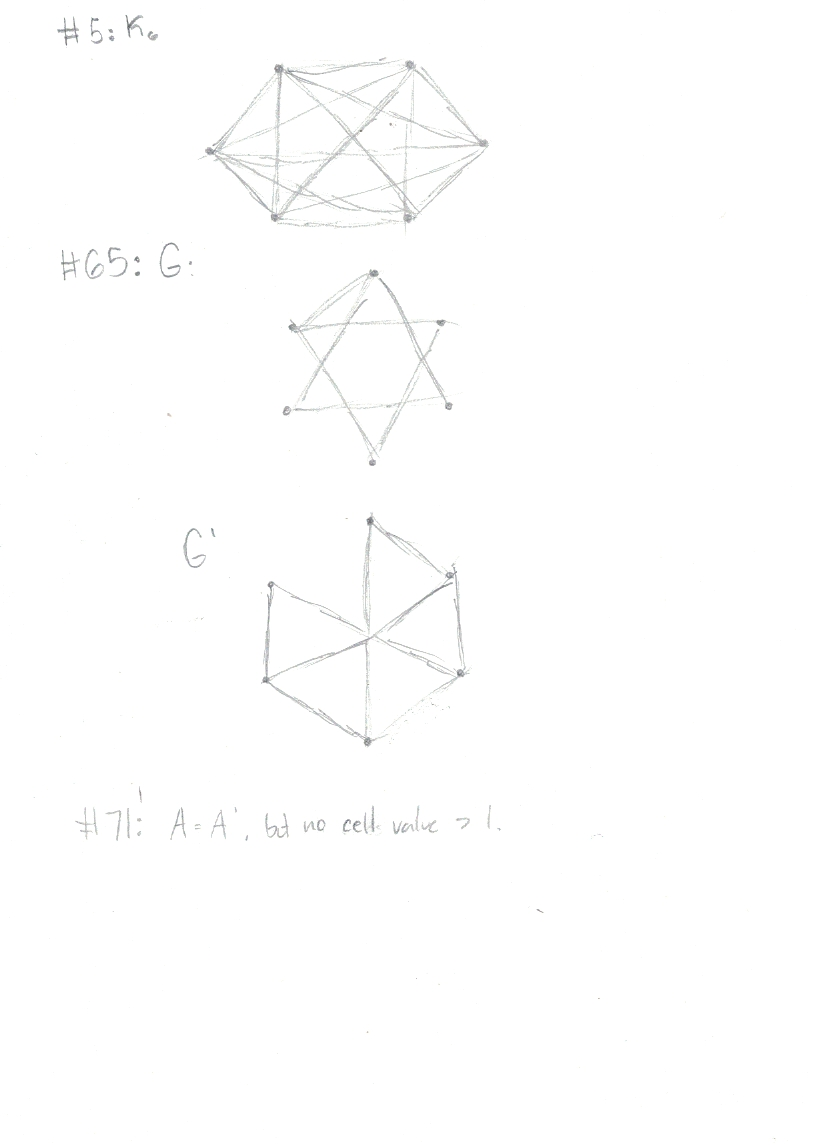 #5: K₆
#65: G:
G'
#71: A = A', but no cells value > 1.